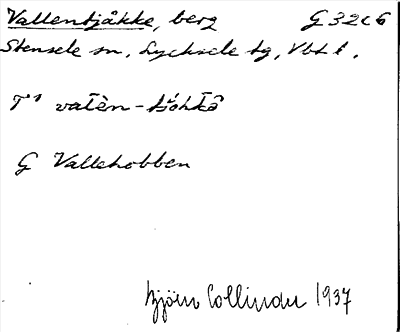 Vallentjåkke, berg G 32 c 6
Stensele sn, Lycksele tg, Vbt l.
T¹ vatēn-
G Vallehobben
Björn Collinder 1937